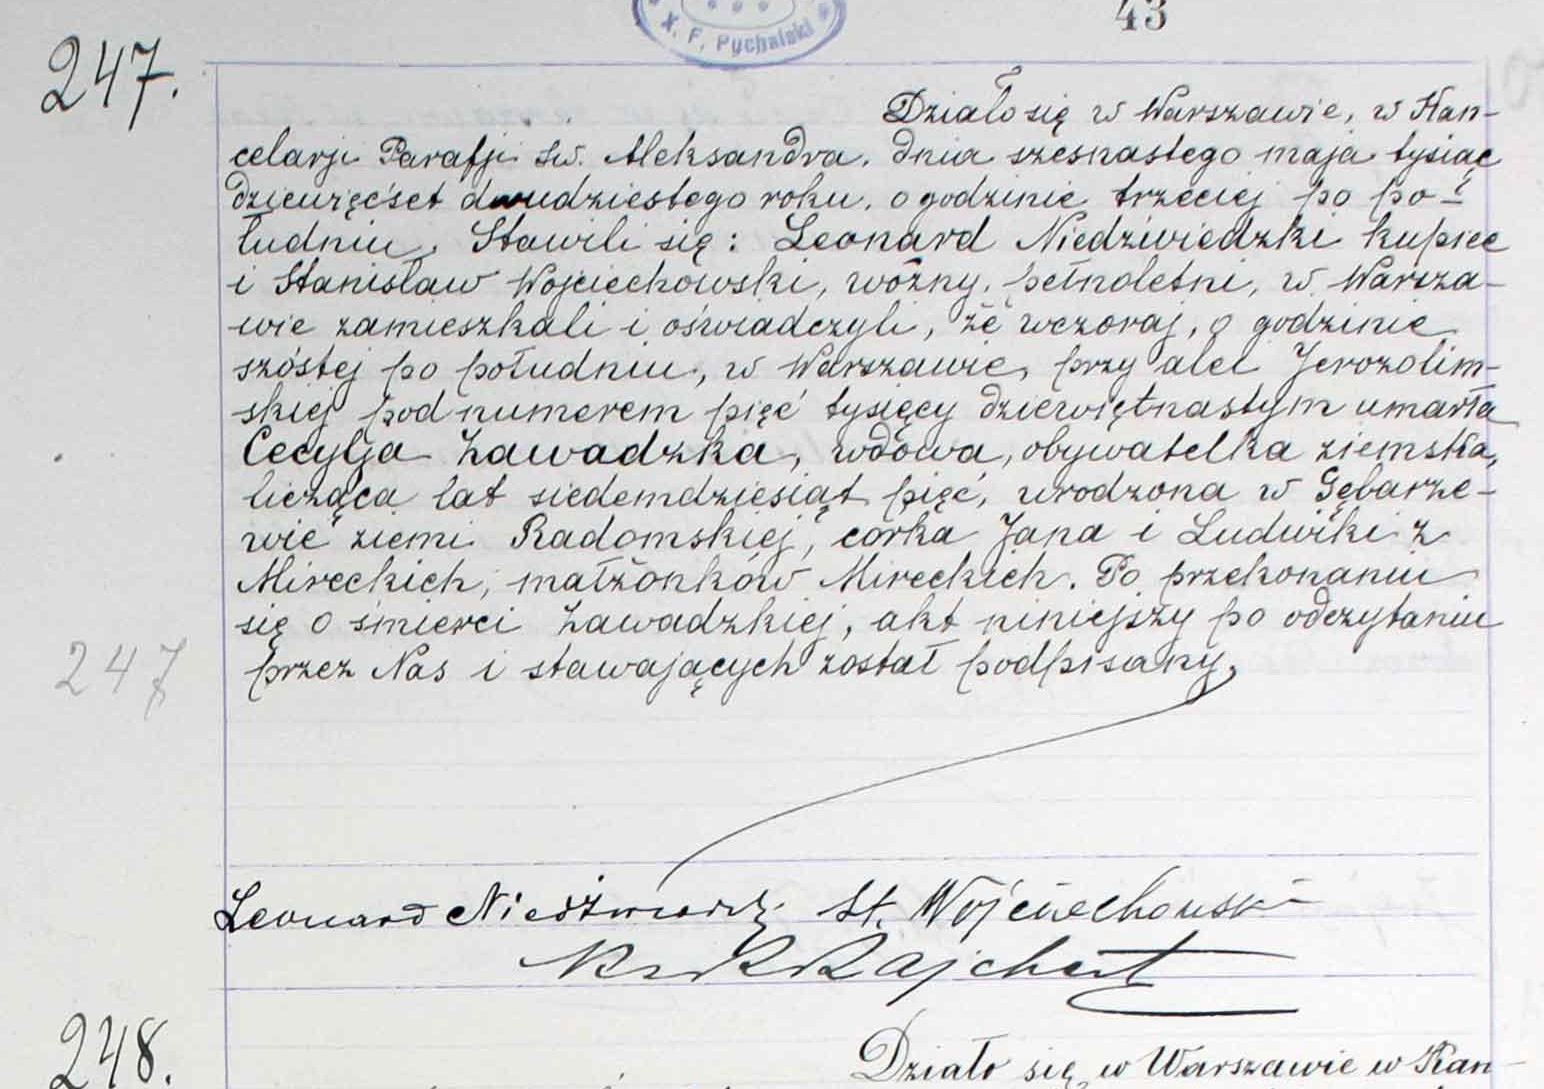 X. F. Pychalski
43
247.
Działo się w Warszawie, w Kan-
celarji Parafji św. Aleksandra, dnia szesnastego maja tysiąc
dziewięćset dwudziestego roku, o godzinie trzeciej po po-
łudniu. Stawili się: Leonard Niedźwiedzki kupiec
i Stanisław Wojciechowski, woźny, pełnoletni, w Warsza-
wie zamieszkali i oświadczyli, że wczoraj, o godzinie
szóstej po południu, w Warszawie, przy alei Jerozolim-
skiej pod numerem pięć tysięcy dziewiętnastym umarła
Cecylja Zawadzka, wdowa, obywatelka ziemska,
licząca lat siedemdziesiąt pięć, urodzona w Gębarze-
wie ziemi Radomskiej, córka Jana i Ludwiki z
Mireckich, małżonków Mireckich. Po przekonaniu
się o śmierci Zawadzkiej, akt niniejszy po odczytaniu
przez Nas i stawających został podpisany.
247
Leonard Niedźwiedzki St. Wojciechowski
Rajchert
248.
Działo się w Warszawie w Kan-